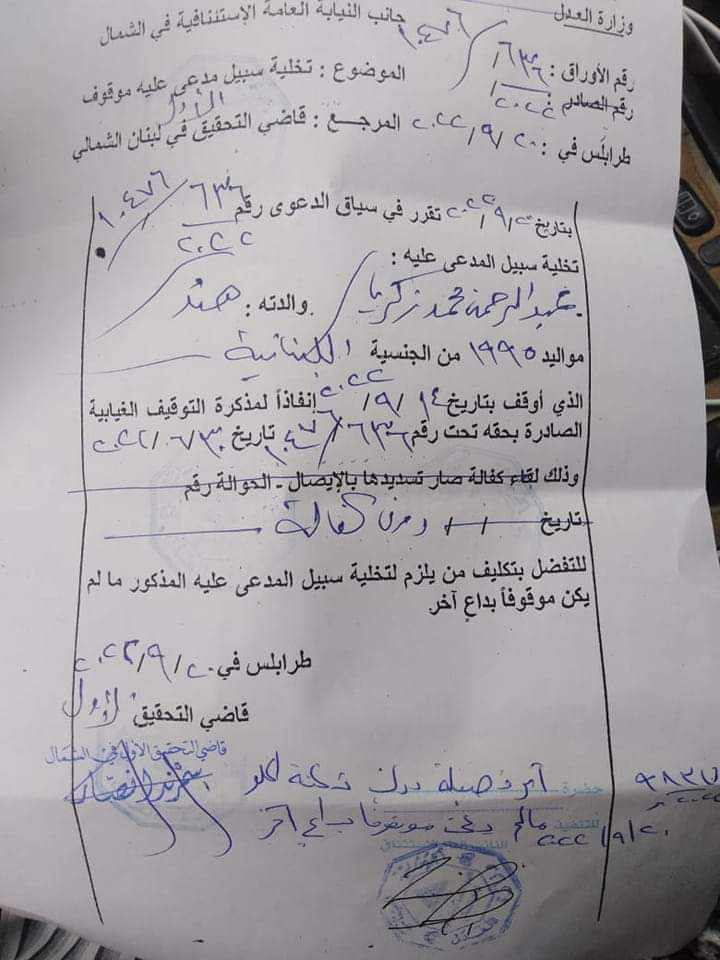 وزارة العدل
جانب النيابة العامة الإستئنافية في الشمال
رقم الأوراق : ٦٣٦ / ١٠٤٧٦
الموضوع : تخلية سبيل مدعى عليه موقوف
رقم الصادر / ٢٠٢٢
طرابلس في : ٢٠ / ٩ / ٢٠٢٢ المرجع : قاضي التحقيق الأول في لبنان الشمالي
بتاريخ ٢٠ / ٩ / ٢٠٢٢ تقرر في سياق الدعوى رقم ٦٣٦ / ١٠٤٧٦
٢٠٢٢
تخلية سبيل المدعى عليه :
عبد الرحمن محمد زكريا والدته : هند
مواليد ١٩٩٥ من الجنسية اللبنانية
الذي أوقف بتاريخ ١٤ / ٩ / ٢٠٢٢ إنفاذاً لمذكرة التوقيف الغيابية
الصادرة بحقه تحت رقم ٦٣٦ / ١٠٤٧٦ تاريخ ٣٠ / ٦ / ٢٠٢٢
وذلك لقاء كفالة صار تسديدها بالإيصال - الحوالة رقم
تاريخ / / ودون كفالة
للتفضل بتكليف من يلزم لتخلية سبيل المدعى عليه المذكور ما لم
يكن موقوفاً بداعٍ آخر.
طرابلس في ٢٠ / ٩ / ٢٠٢٢
قاضي التحقيق الأول
قاضي التحقيق الأول في الشمال
حضرة آمر فصيلة درك
للتنفيذ مالم يكن موقوفا بداع آخر
٢٠ / ٩ / ٢٠٢٢
النائب العام الاستئنافي